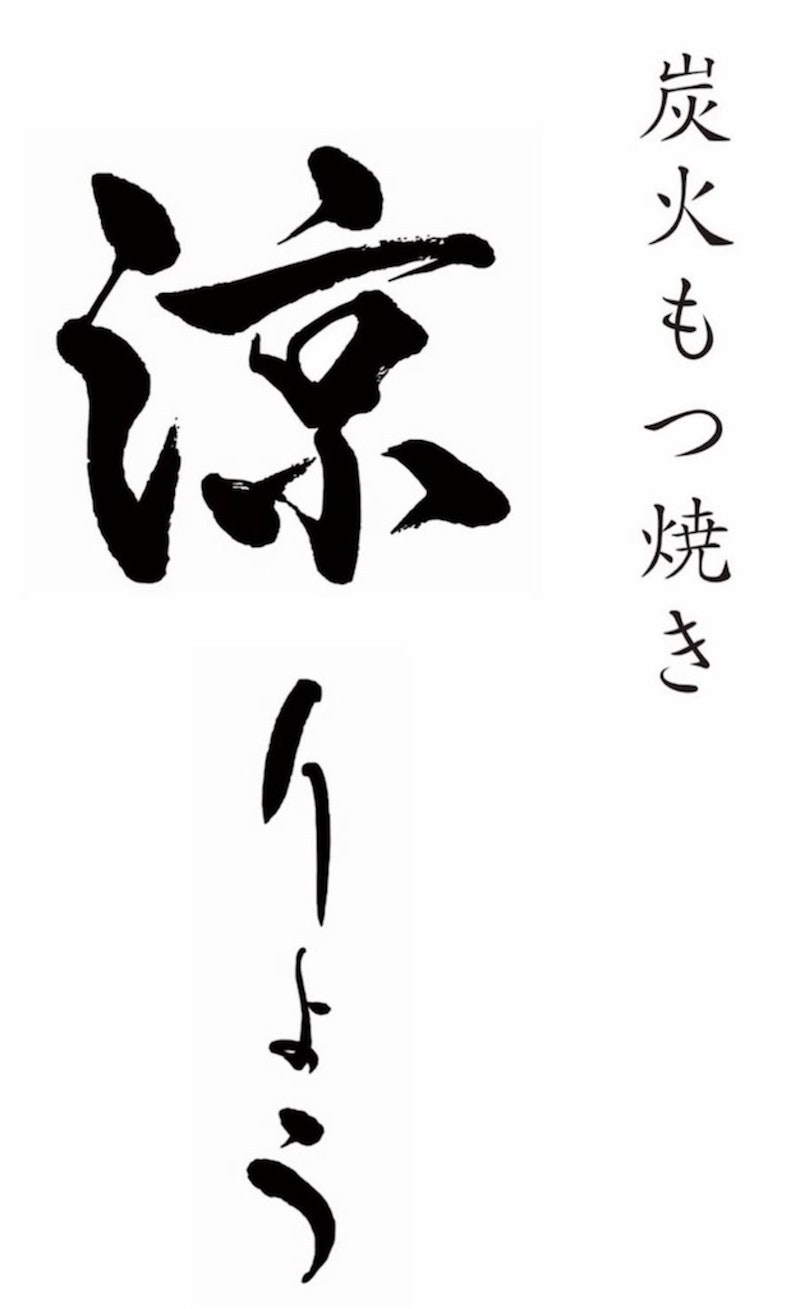 炭火もつ焼き
涼
りょう